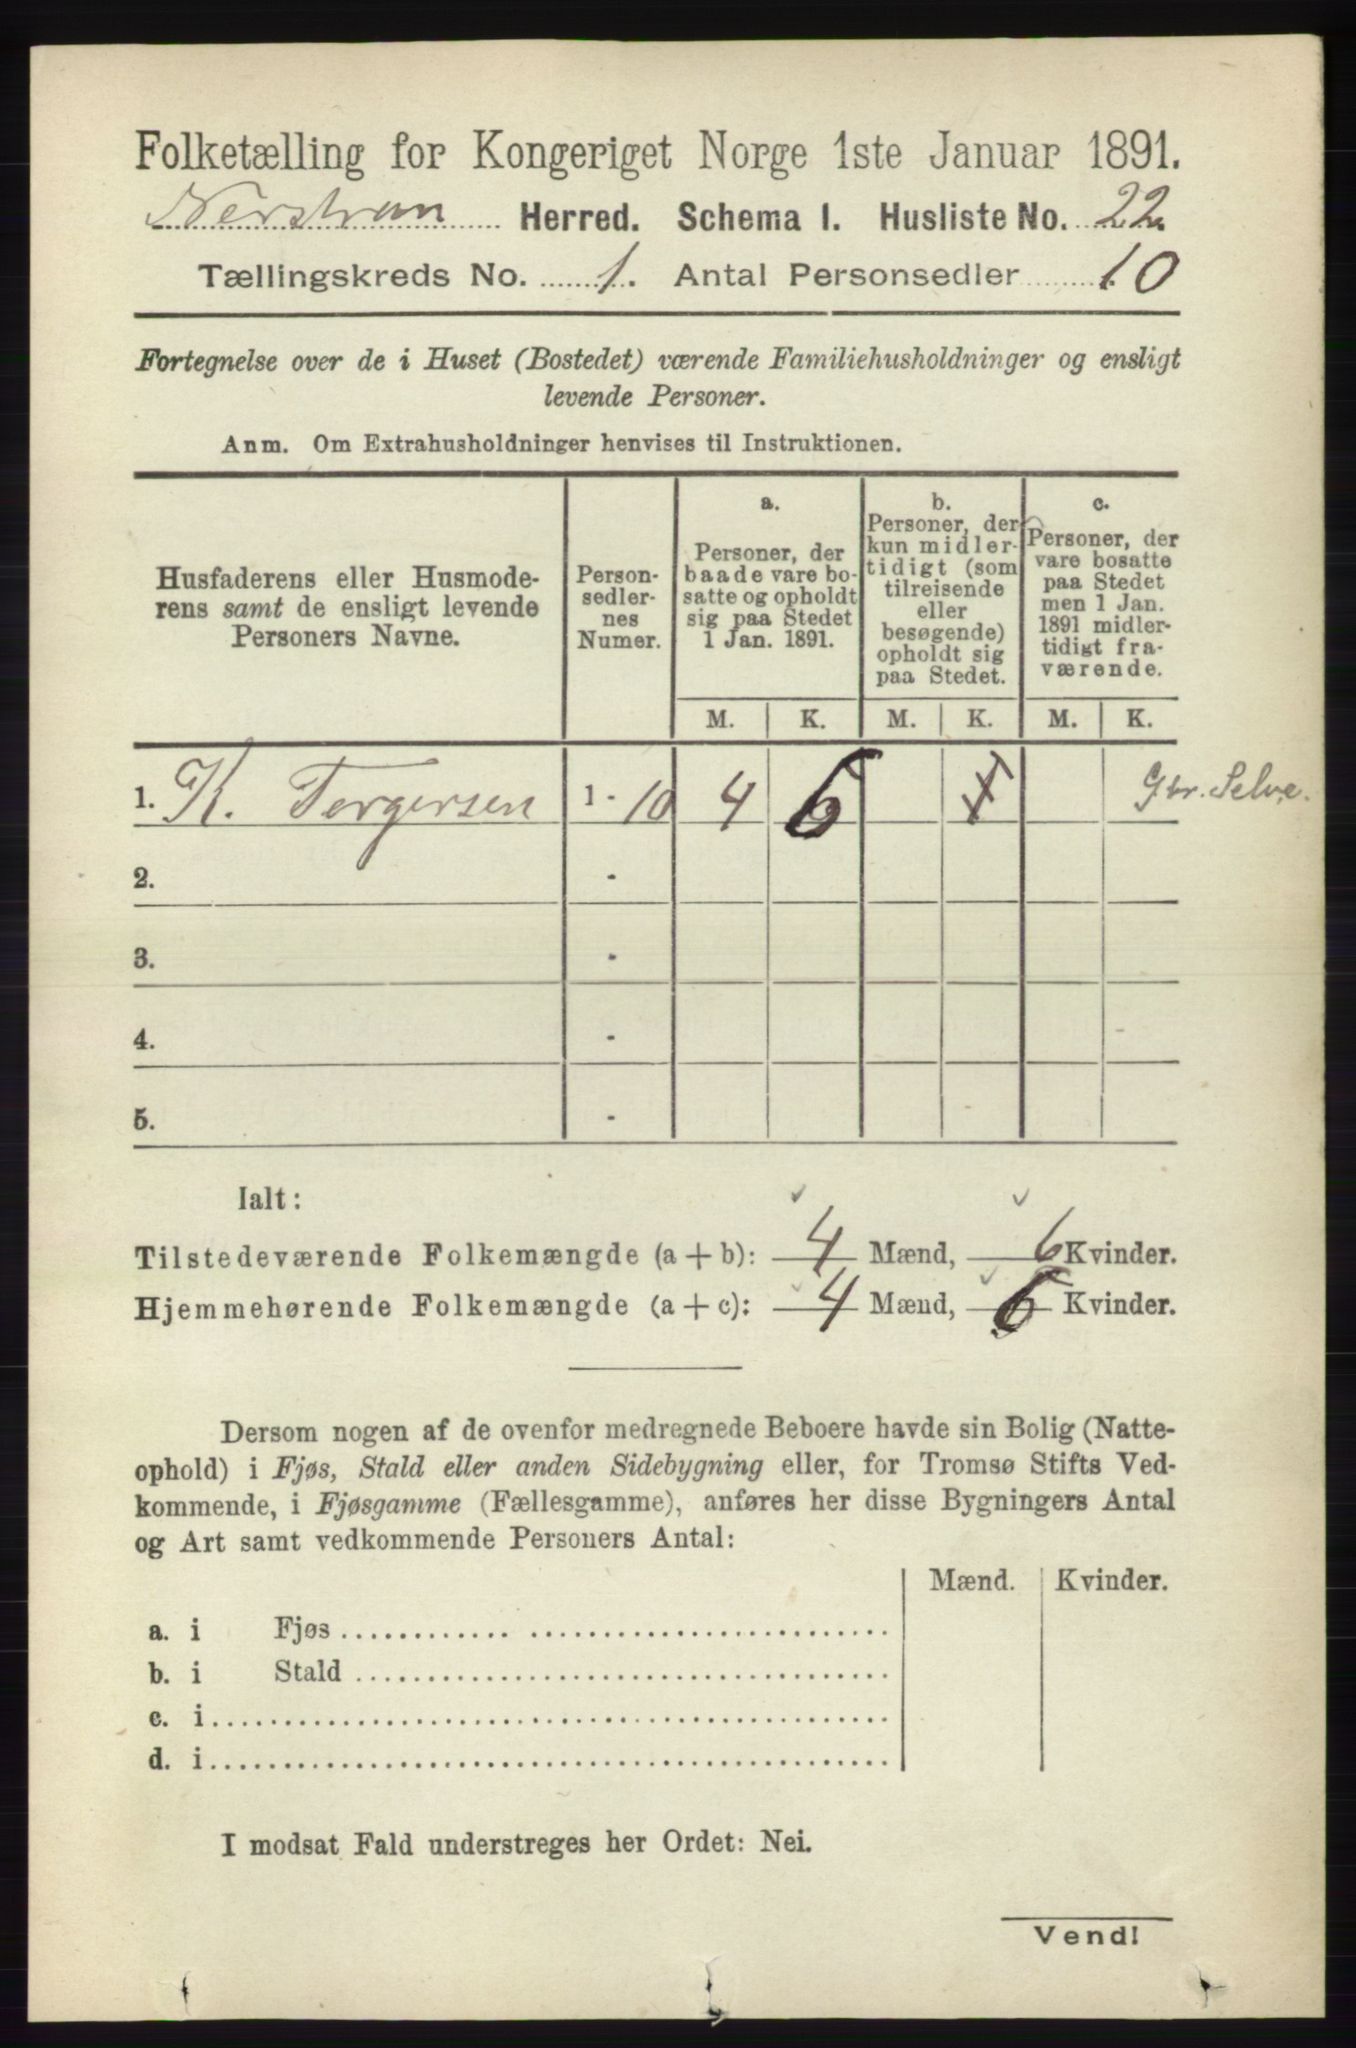 Folketælling for Kongeriget Norge 1ste Januar 1891.
Nerstran Herred. Schema I. Husliste No. 22.
Tællingskreds No. 1. Antal Personsedler 10
Fortegnelse over de i Huset (Bostedet) værende Familiehusholdninger og ensligt
levende Personer.
Anm. Om Extrahusholdninger henvises til Instruktionen.
Husfaderens eller Husmode-
rens samt de ensligt levende
Personers Navne.
Person-
sedler-
nes
Numer.
a.
Personer, der
baade vare bo-
satte og opholdt
sig paa Stedet
1 Jan. 1891.
b.
Personer, der
kun midler-
tidigt (som
tilreisende
eller
besøgende)
opholdt sig
paa Stedet.
c.
Personer, der
vare bosatte
paa Stedet
men 1 Jan.
1891 midler-
tidigt fra-
værende.
M. K. M. K. M. K.
1. K. Torgersen 1 - 10 4 6 1 Gbr. Selve.
2. -
3. -
4. -
5. -
Ialt:
Tilstedeværende Folkemængde (a + b): 4 Mænd, 6 Kvinder.
Hjemmehørende Folkemængde (a + c): 4 Mænd, 6 Kvinder.
Dersom nogen af de ovenfor medregnede Beboere havde sin Bolig (Natte-
ophold) i Fjøs, Stald eller anden Sidebygning eller, for Tromsø Stifts Ved-
kommende, i Fjøsgamme (Fællesgamme), anføres her disse Bygningers Antal
og Art samt vedkommende Personers Antal:
Mænd. Kvinder.
a. i Fjøs
b. i Stald
c. i
d. i
I modsat Fald understreges her Ordet: Nei.
Vend!